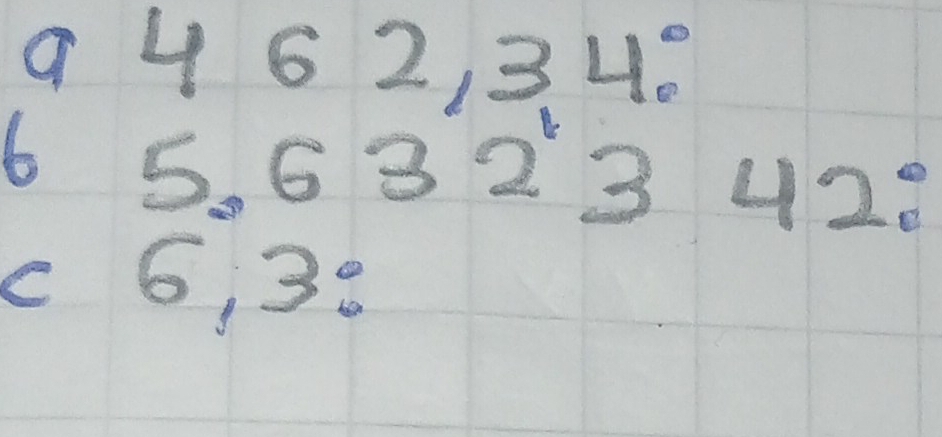 a 462,34:
b 5.632'342:
c 6,3: